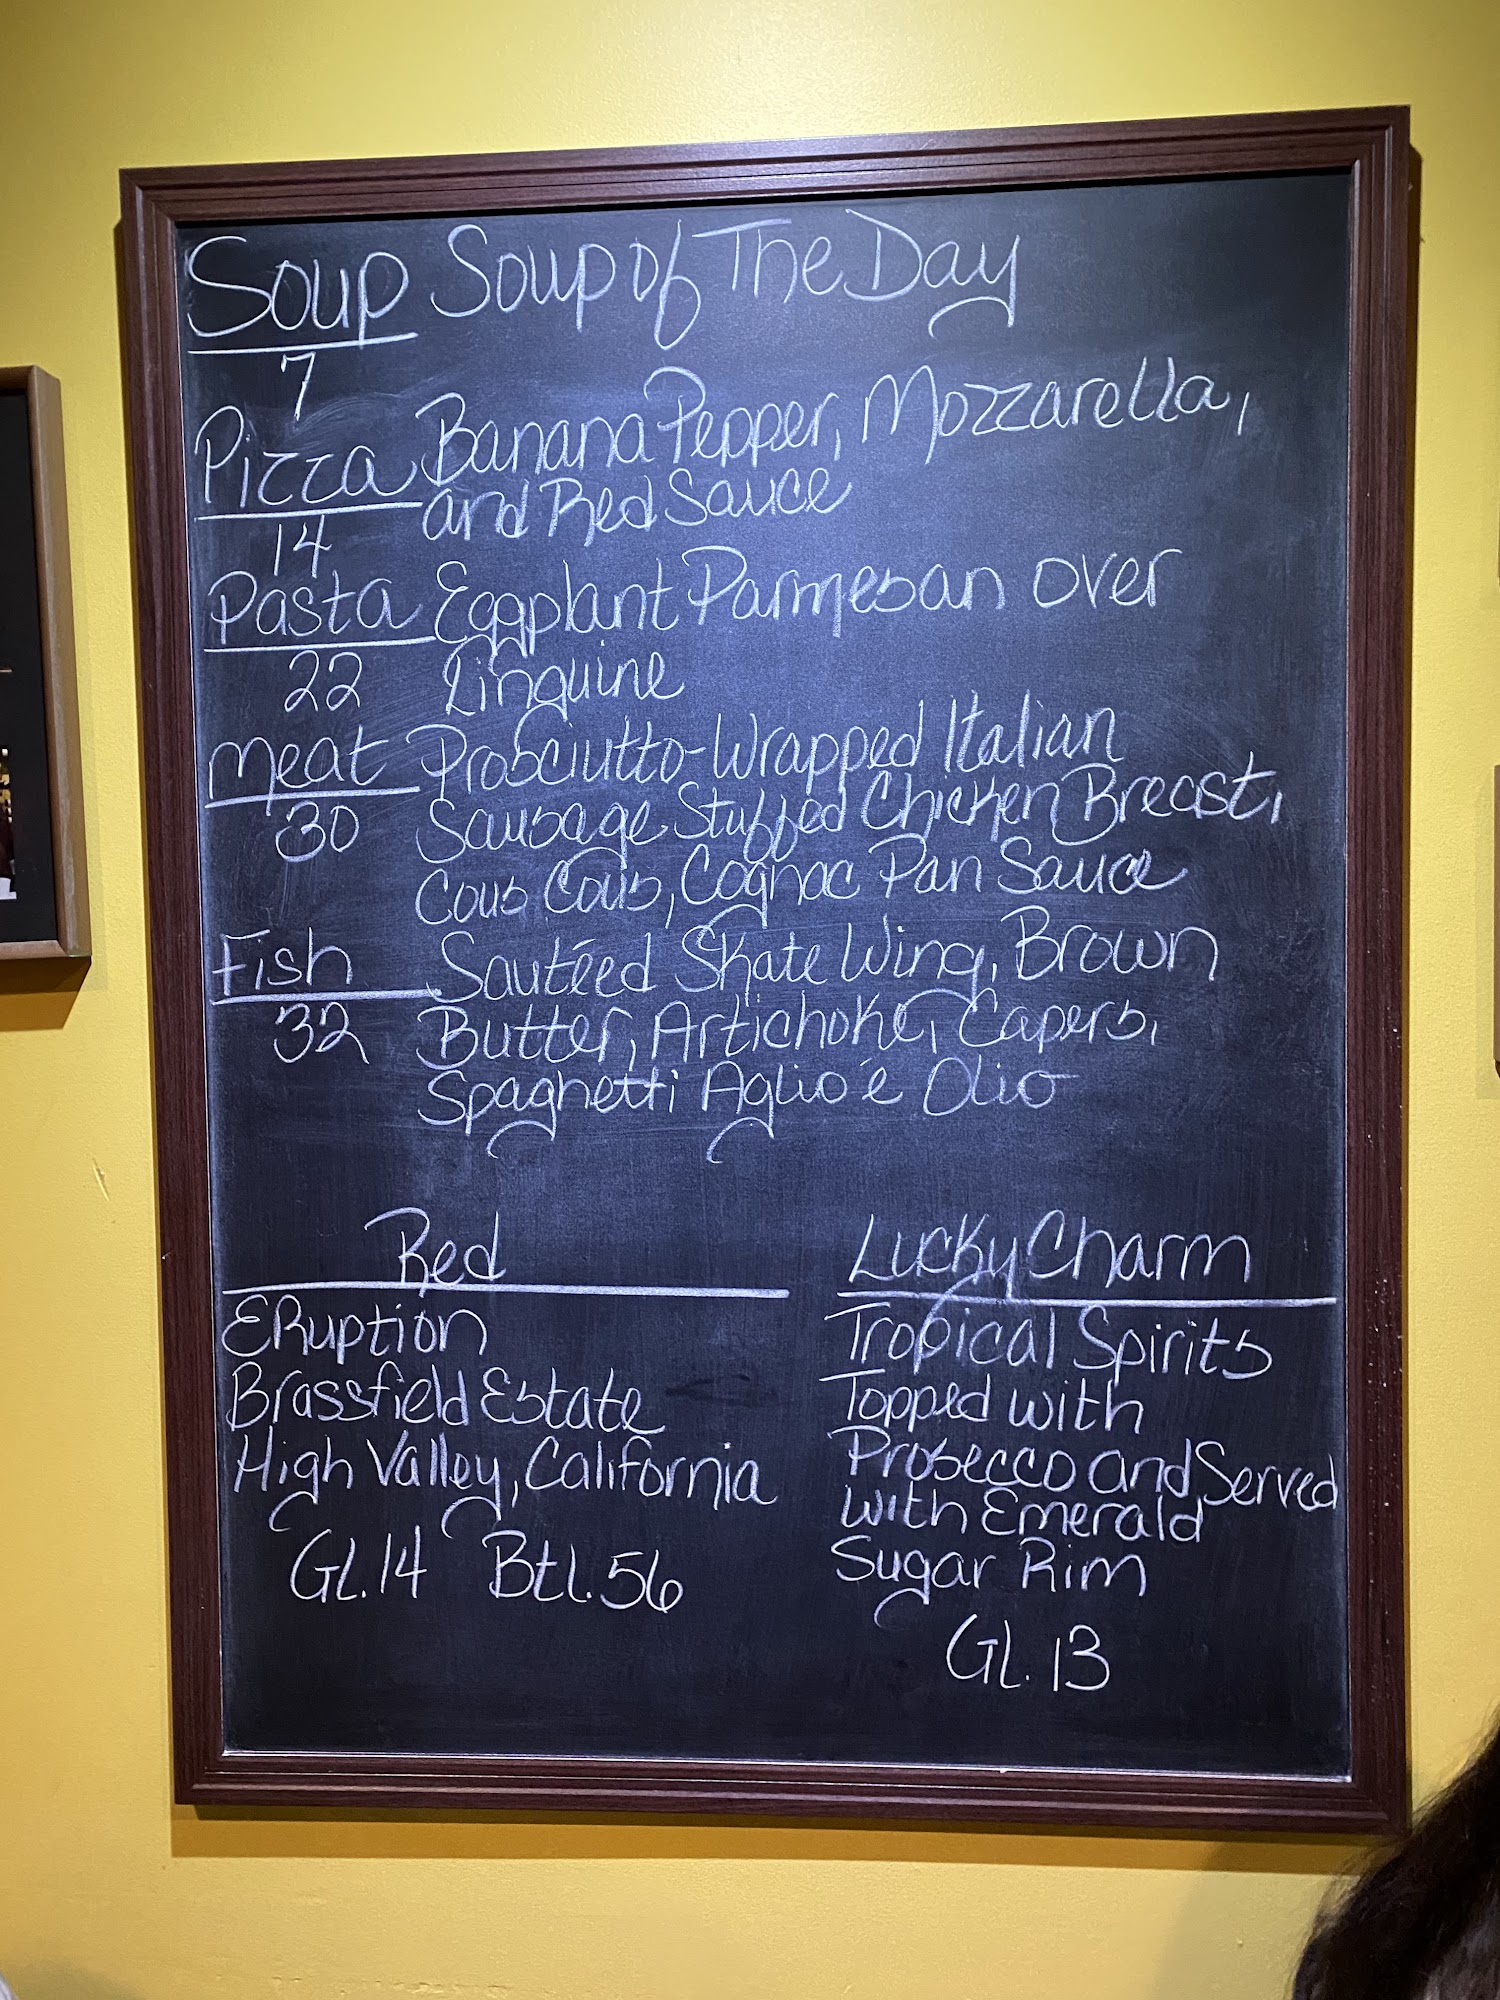 Soup Soup of The Day
7
Pizza Banana Pepper, Mozzarella,
and Red Sauce
14
Pasta Eggplant Parmesan over
22 Linguine
Meat Prosciutto-Wrapped Italian
30 Sausage Stuffed Chicken Breast,
Cous Cous, Cognac Pan Sauce
Fish Sautéed Skate Wing, Brown
32 Butter, Artichoke, Capers,
Spaghetti Aglio é Olio
Red
ERuption
Brassfield Estate
High Valley, California
GL. 14 Btl. 56
Lucky Charm
Tropical Spirits
Topped with
Prosecco and Served
with Emerald
Sugar Rim
GL. 13